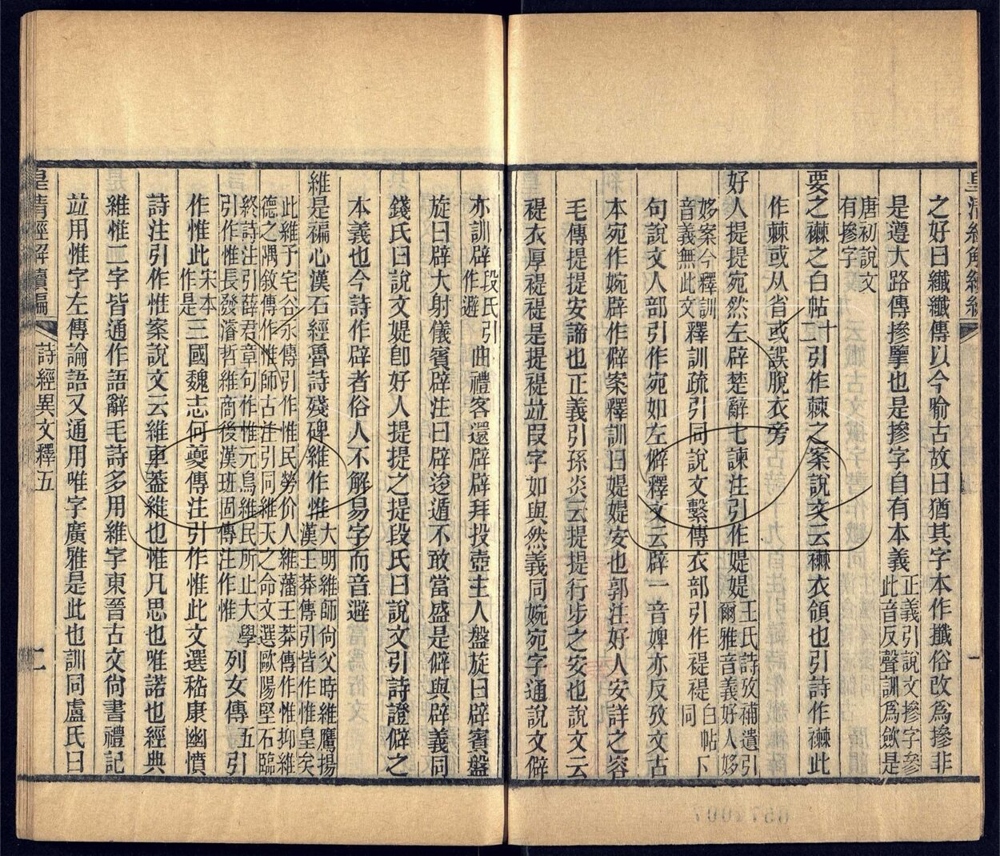 之好曰纖纖傳以今喻古故曰猶其字本作攕俗改爲摻非
是遵大路傳摻擥也是摻字自有本義正義引說文摻字參此音反聲訓爲斂是
唐初說文有摻字
要之襋之白帖十二引作棘之案說文云襋衣領也引詩作襋此
作棘或从省或誤脫衣旁
好人提提宛然左辟楚辭七諫注引作媞媞王氏詩攷補遺引爾雅音義好人姼
姼案今釋訓音義無此文釋訓疏引同說文繫傳衣部引作禔禔白帖下同
句說文人部引作宛如左僻釋文云辟一音婢亦反攷文古
本宛作婉辟作僻案釋訓曰媞媞安也郭注好人安詳之容
毛傳提提安諦也正義引孫炎云提提行步之安也說文云
禔衣厚禔禔是提禔竝叚字如與然義同婉宛字通說文僻
亦訓辟段氏引作避曲禮客還辟辟拜投壺主人盤旋曰辟賓盤
旋曰辟大射儀賓辟注曰辟逡遁不敢當盛是僻與辟義同
錢氏曰說文媞卽好人提提之提段氏曰說文引詩證僻之
本義也今詩作辟者俗人不解易字而音避
維是褊心漢石經魯詩殘碑維作惟大明維師尙父時維鷹揚漢王莽傳引皆作惟皇矣
此維予宅谷永傳引作惟民勞价人維藩王莽傳作惟抑維德之隅敘傳作惟師古注引同維天之命文選歐陽堅石臨
終詩注引薛君章句作惟元鳥維民所止大學引作惟長發濬哲維商後漢班固傳注作惟列女傳五引
作惟此宋本作是三國魏志何夔傳注引作惟此文選嵇康幽憤
詩注引作惟案說文云維車蓋維也惟凡思也唯諾也經典
維惟二字皆通作語辭毛詩多用維字東晉古文尙書禮記
竝用惟字左傳論語又通用唯字廣雅惟此也訓同盧氏曰
皇清經解續編
詩經異文釋五
二